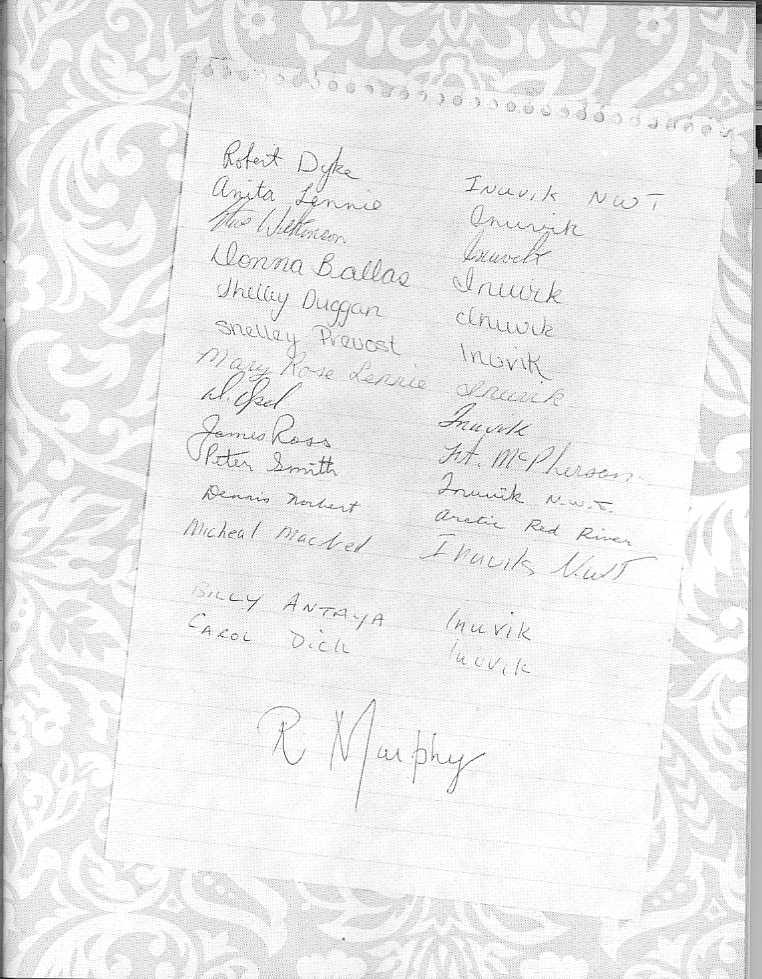 Robert Dyke Inuvik NWT
Anita Lennie Inuvik
Wilkinson Inuvik
Donna Ballas Inuvik
Shelley Duggan Inuvik
Shelley Prevost Inuvik
Mary Rose Lennie Inuvik
Inuvik
James Ross Ft. McPherson
Peter Smith Inuvik N.W.T.
Dennis Norbert Arctic Red River
Micheal Inuvik N.W.T
Billy Antaya Inuvik
Carol Dick Inuvik
R Murphy